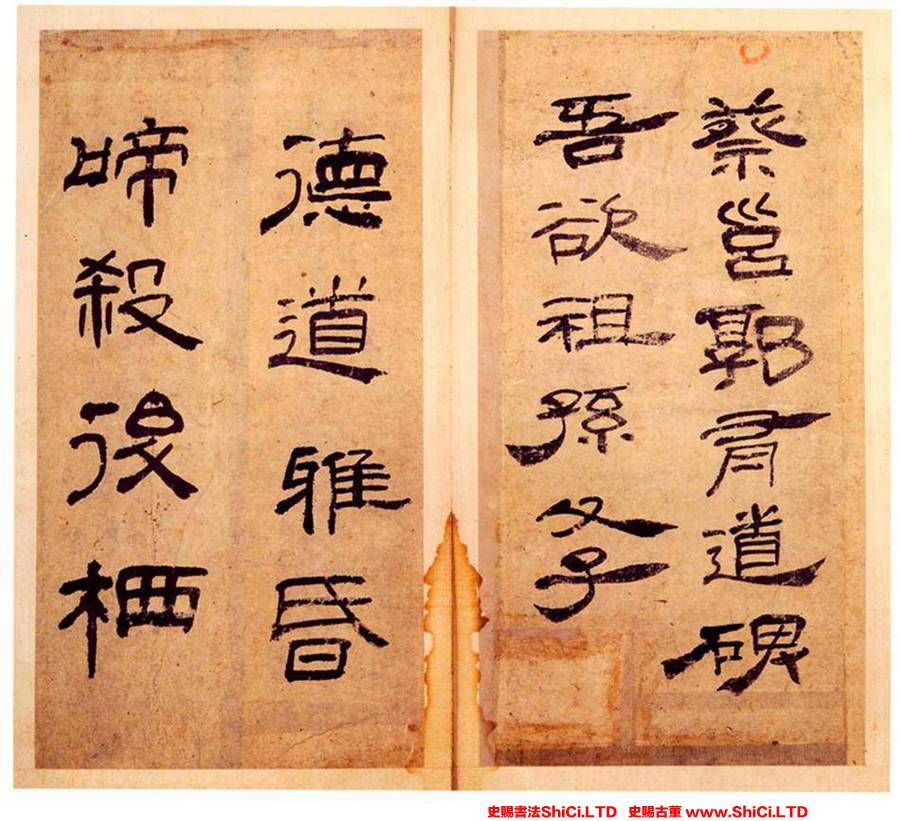 蔡邕郭有道碑
吾欲祖孫
德道雅昏
啼殺復栖
史賜書法ShiCi.LTD 史賜古董 www.ShiCi.LTD